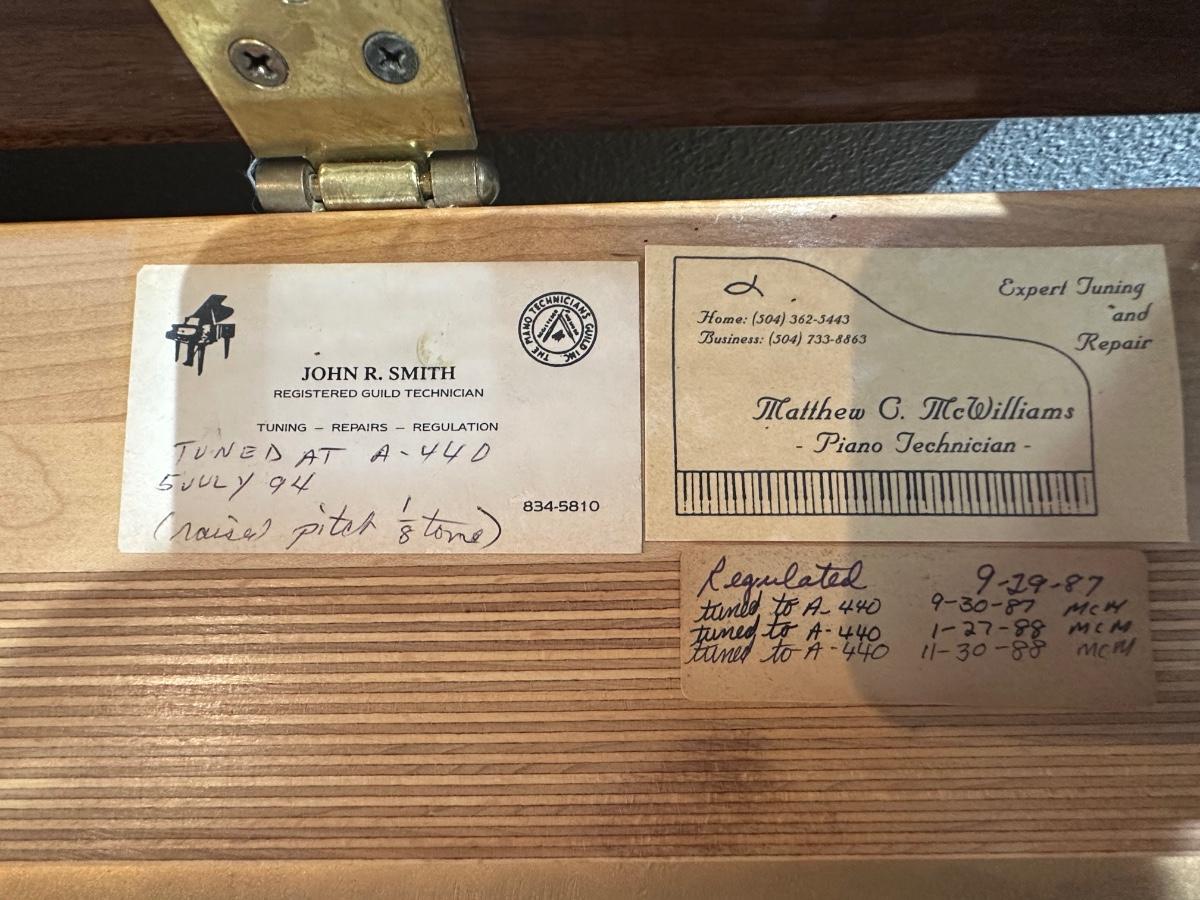 THE PIANO TECHNICIANS GUILD INC.
JOHN R. SMITH
REGISTERED GUILD TECHNICIAN
TUNING – REPAIRS – REGULATION
TUNED AT A-440
5 JULY 94
834-5810
(raised pitch 1/8 tone)
Expert Tuning
and
Repair
Home: (504) 362-5443
Business: (504) 733-8863
Matthew C. McWilliams
- Piano Technician -
Regulated 9-29-87
tuned to A-440 9-30-87 McM
tuned to A-440 1-27-88 McM
tuned to A-440 11-30-88 McM